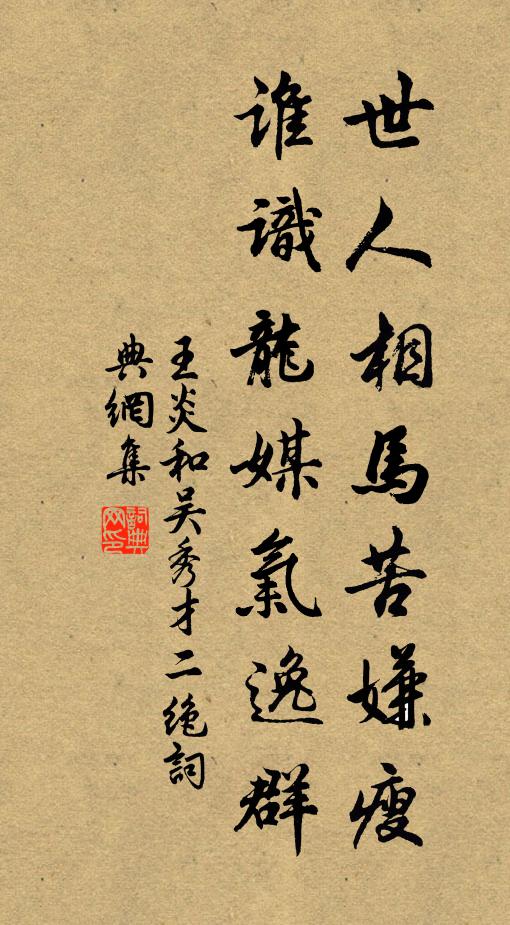 世人相馬苦嫌瘦
誰識龍媒氣逸群
王炎和吴秀才二绝詞
典網集
詞典
网印